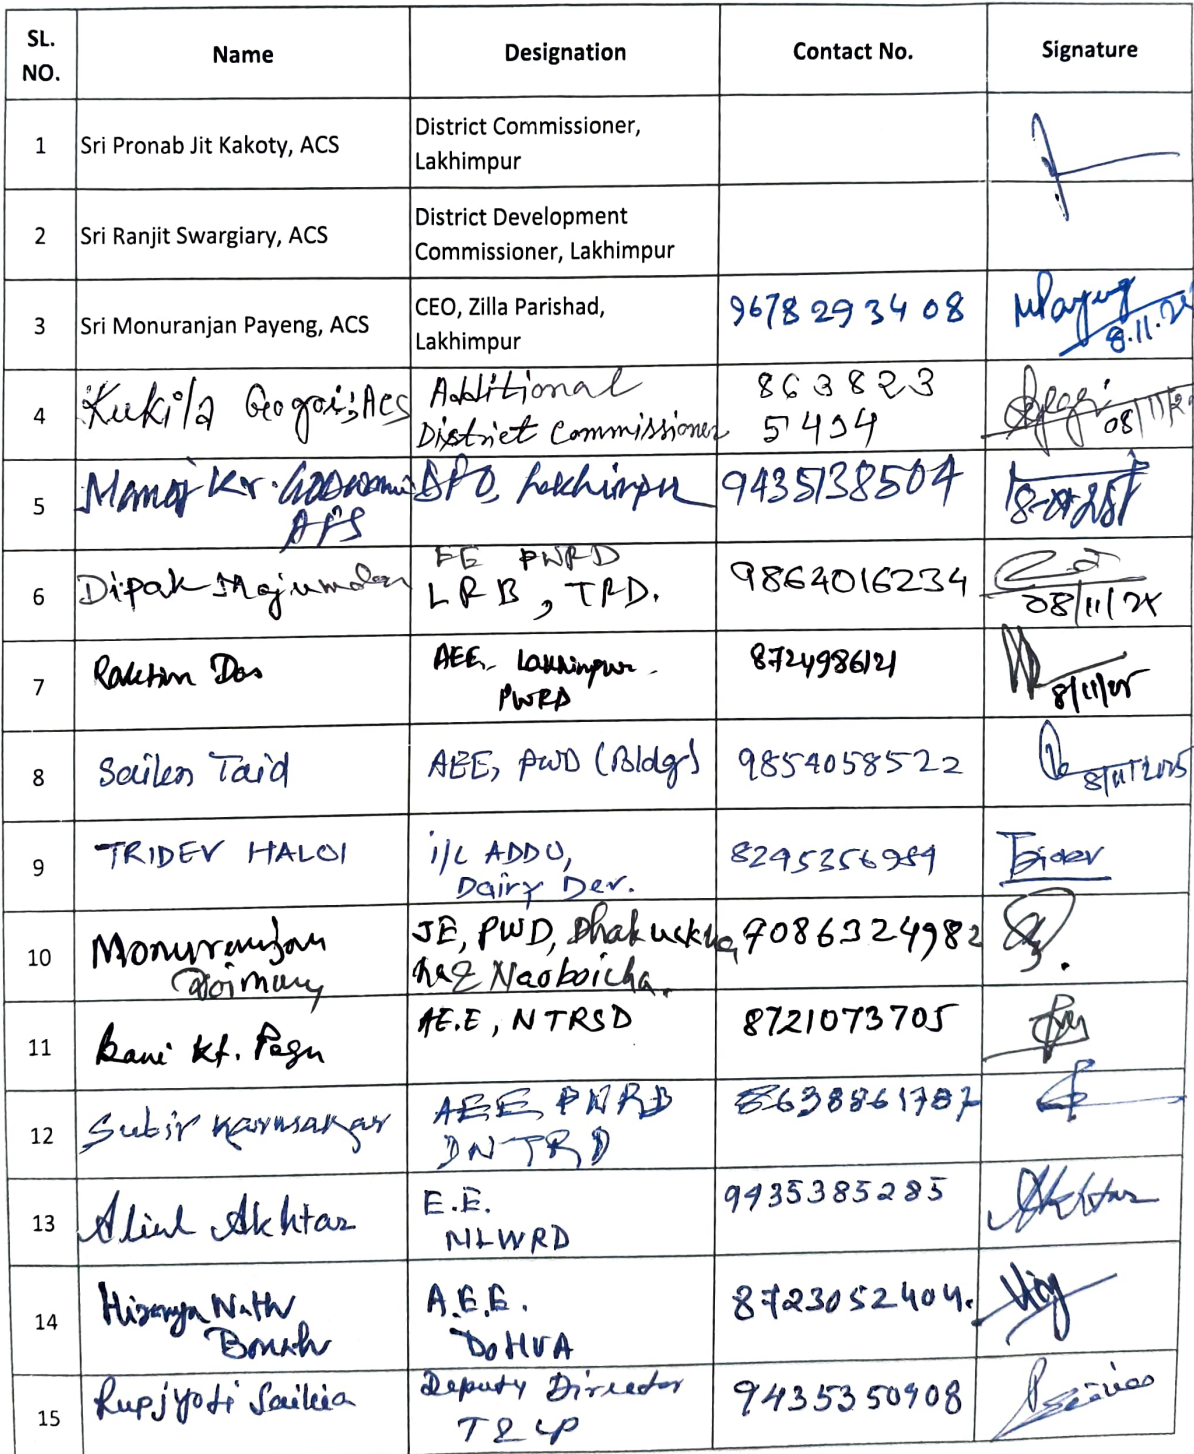 SL. NO. Name Designation Contact No. Signature
1 Sri Pronab Jit Kakoty, ACS District Commissioner, Lakhimpur
2 Sri Ranjit Swargiary, ACS District Development Commissioner, Lakhimpur
3 Sri Monuranjan Payeng, ACS CEO, Zilla Parishad, Lakhimpur 9678293408 MPayeng 8.11.25
4 Kukila Gogoi, ACS Additional District Commissioner 863823 5494 08/11/25
5 Manoj Kr. Goswami AFS DFO, Lakhimpur 9435138504
6 Dipak Majumdar EE PWRD LRB, TRD. 9864016234 08/11/25
7 Raktim Das AEE, Lakhimpur PWRD 8724986121 8/11/25
8 Sailen Taid AEE, PWD (Bldg) 9854058522 8/11/2025
9 TRIDEV HALOI i/c ADDO, Dairy Dev. 8295356984 Tridev
10 Monuranjan Doimary JE, PWD, Dhakuakhana & Naoboicha. 9086324982
11 Bani Kt. Pegu AE.E, NTRSD 8721073705
12 Subir Karmakar AEE PWRD DNTRD 8638861787
13 Aliul Akhtar E.E. NLWRD 9435385285 Akhtar
14 Hiranya Nath Borah A.E.E. DoHUA 8723052404.
15 Rupjyoti Saikia Deputy Director T&CP 9435350908